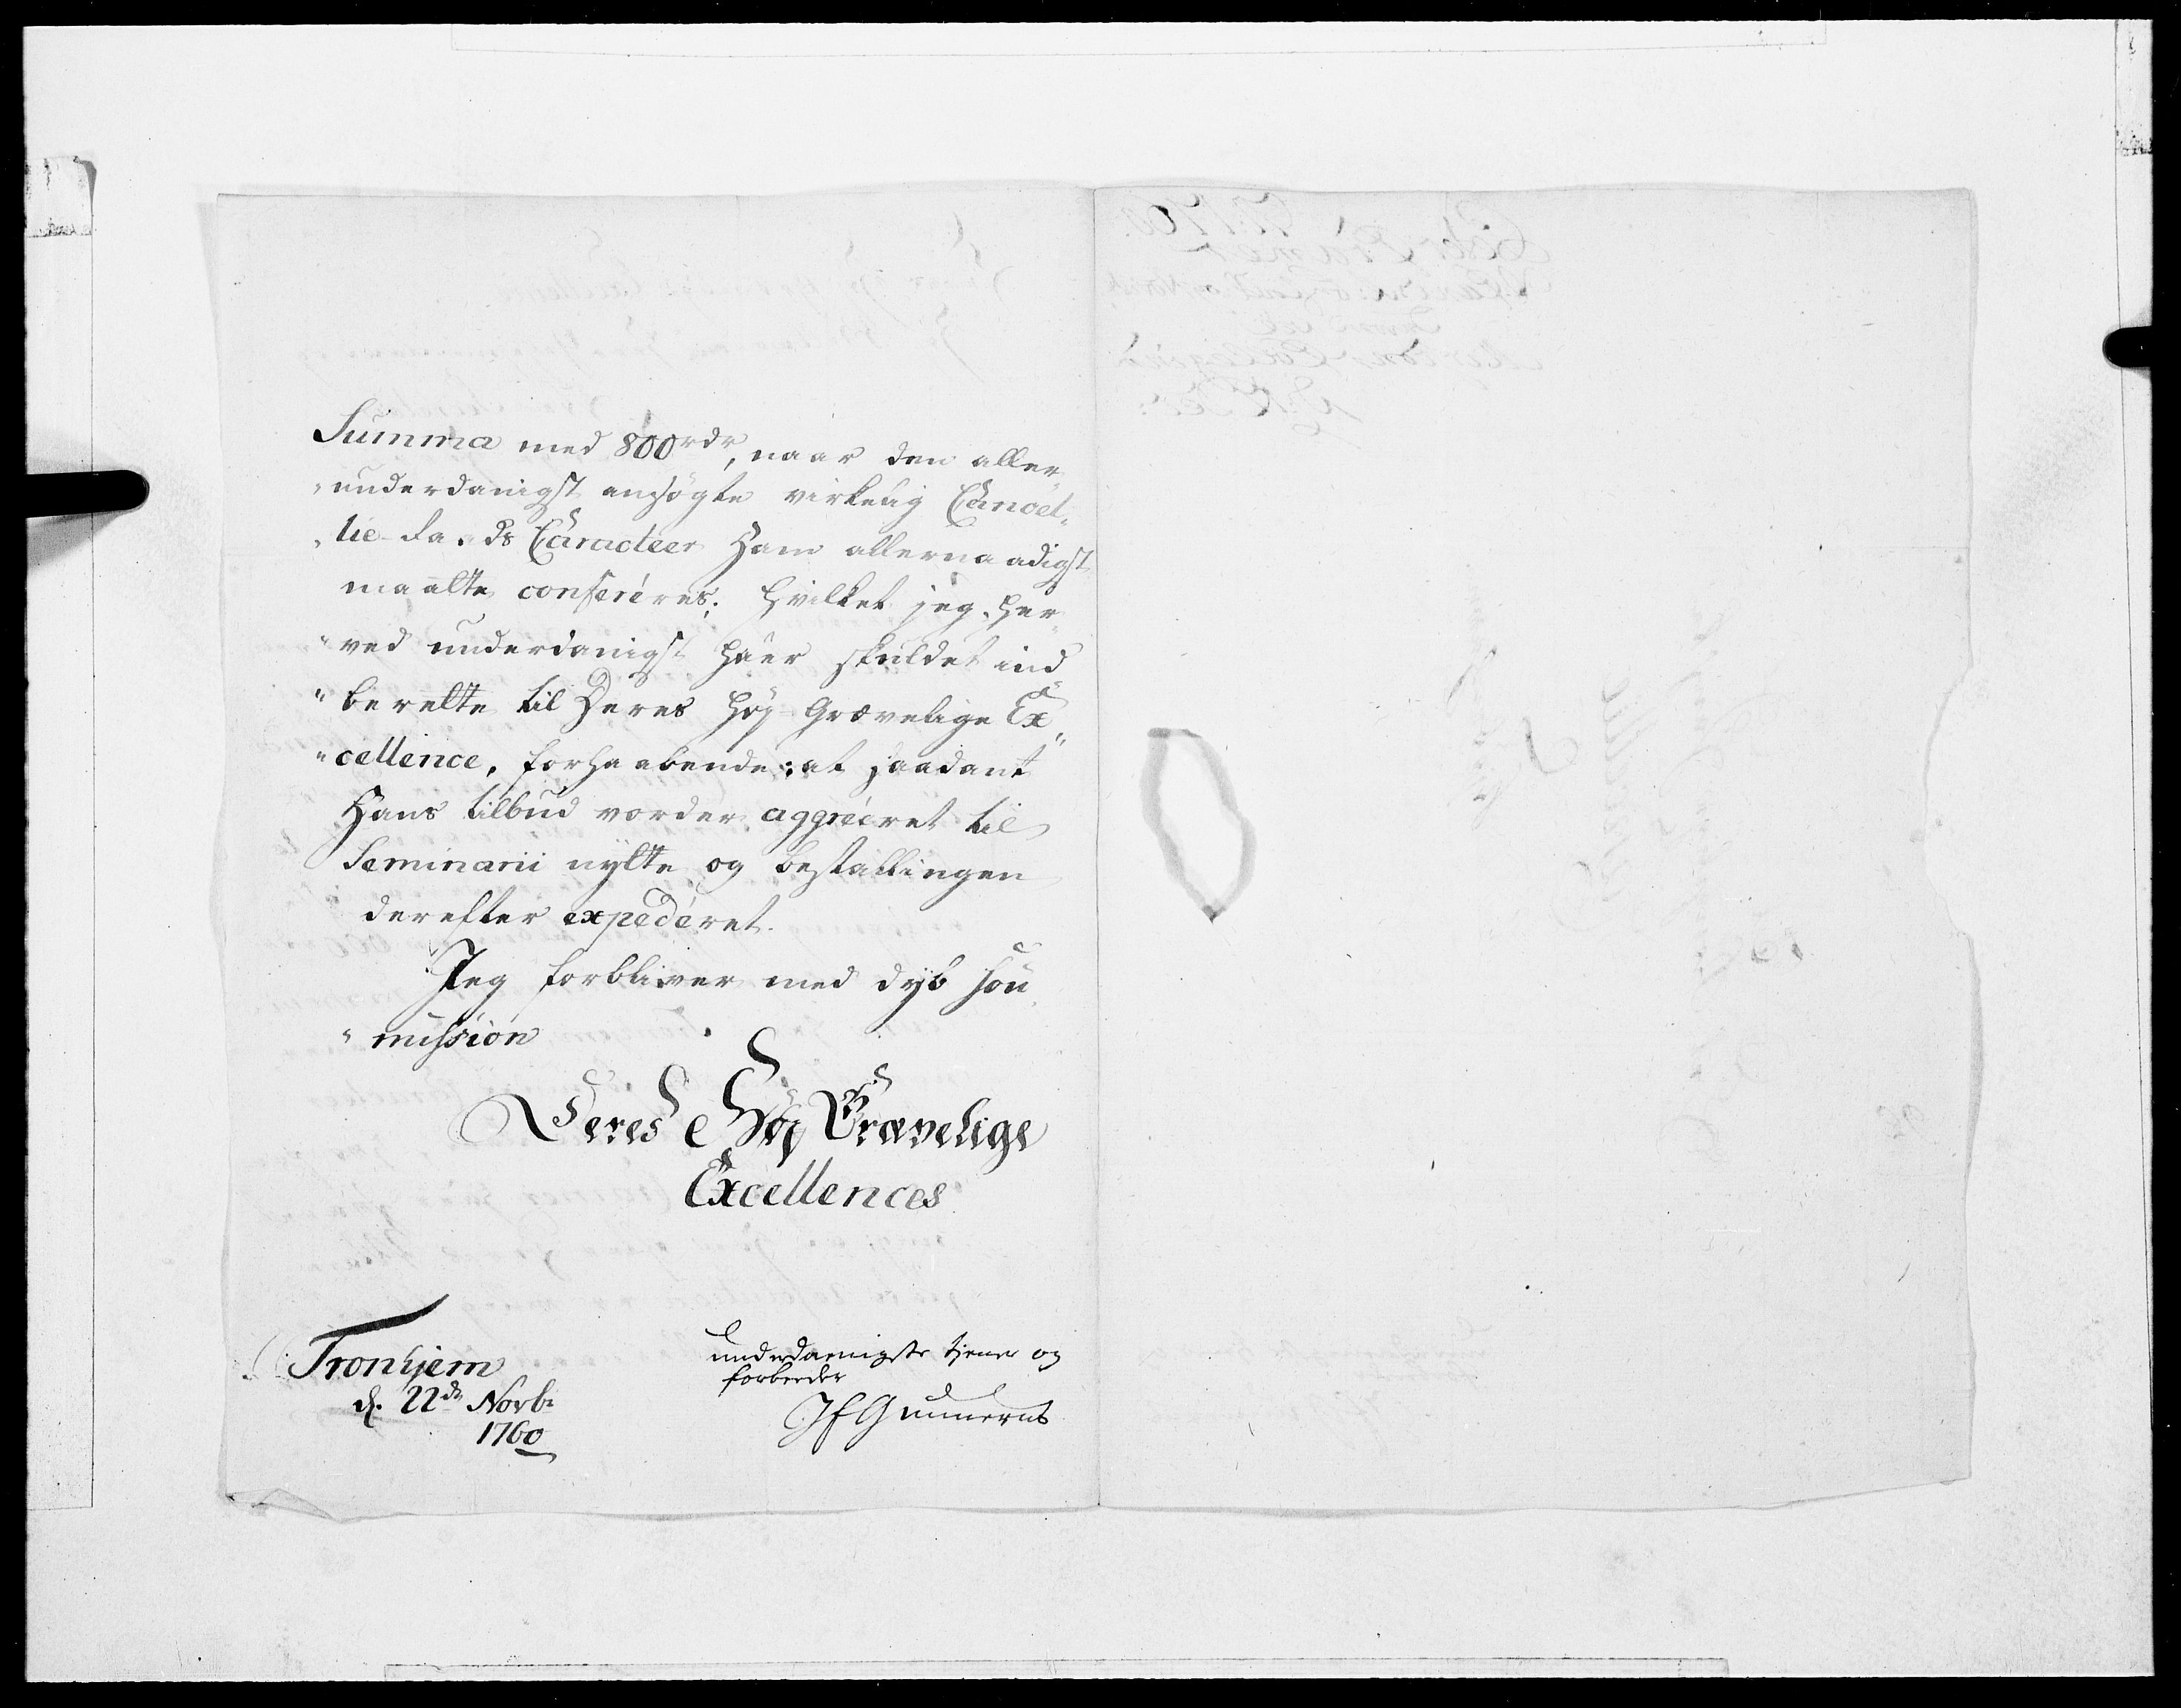 Summa med 800 rdr, naar den aller„
„underdanigst ansögte virkelig Cancel„
„lie-Ra.ds Caracteer Ham allernaadigst
maatte conferéres; hvilket jeg her„
„ved underdanigst haver skuldet ind„
„berette til Deres Høj-Grævelige Ex„
„cellence, forhaabende: at saadant
Hans tilbud vorder aggréeret til
Seminarii nytte og bestallingen
derefter expederet.
Jeg forbliver med dyb sou„
„mission
Deres Høj Grævelige
Excellences
Tronhjem
d. 22de Novbr
1760
underdanigste tjener og
forbeder
JEGunnerus